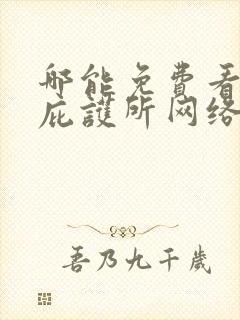 哪能免費看
庇護所网络
吾乃九千歲